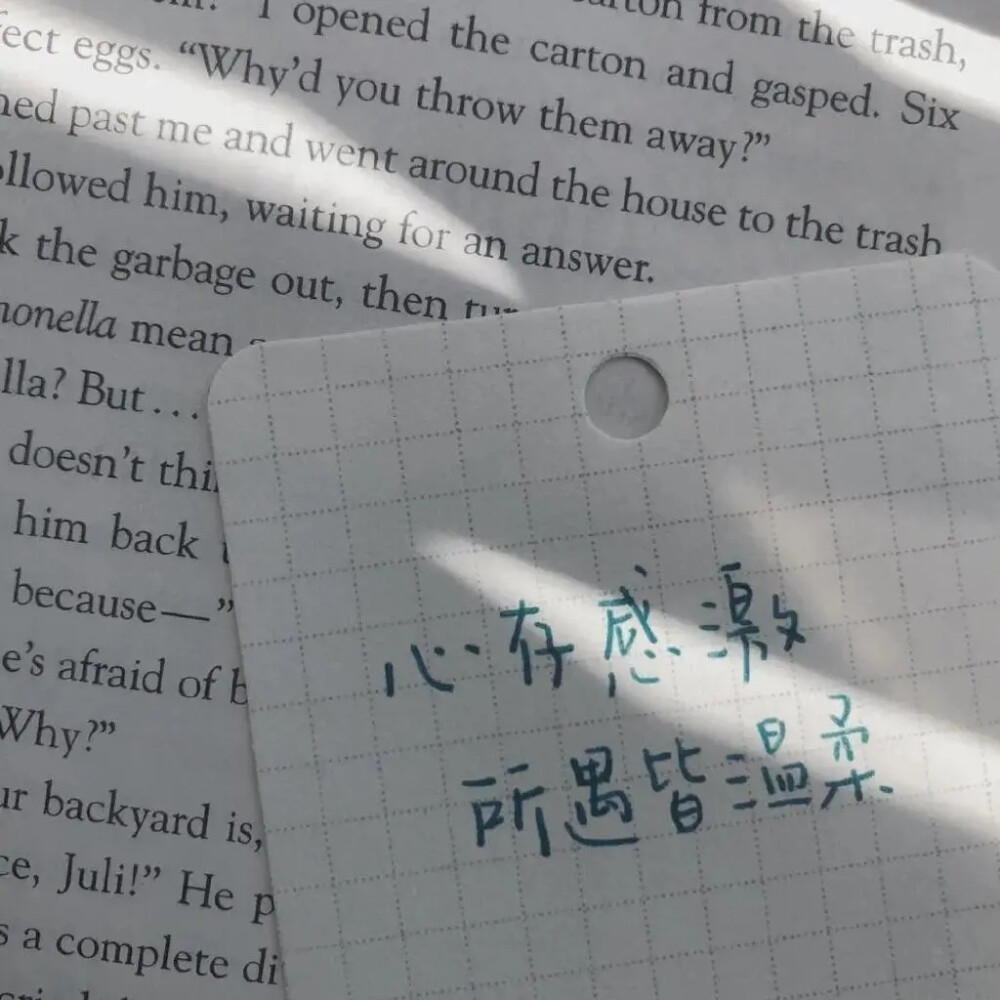 I opened the carton and gasped. Six
from the trash,
eggs. “Why’d you throw them away?”
past me and went around the house to the trash
him, waiting for an answer.
the garbage out, then
mean
But . . .
doesn’t
him back
because—”
afraid of
Why?”
backyard is,
Juli!” He
a complete
心存感激
所遇皆溫柔.